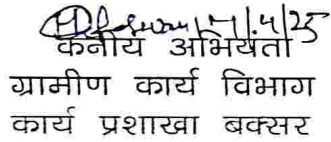 कनीय अभियंता
ग्रामीण कार्य विभाग
कार्य प्रशाखा बक्सर